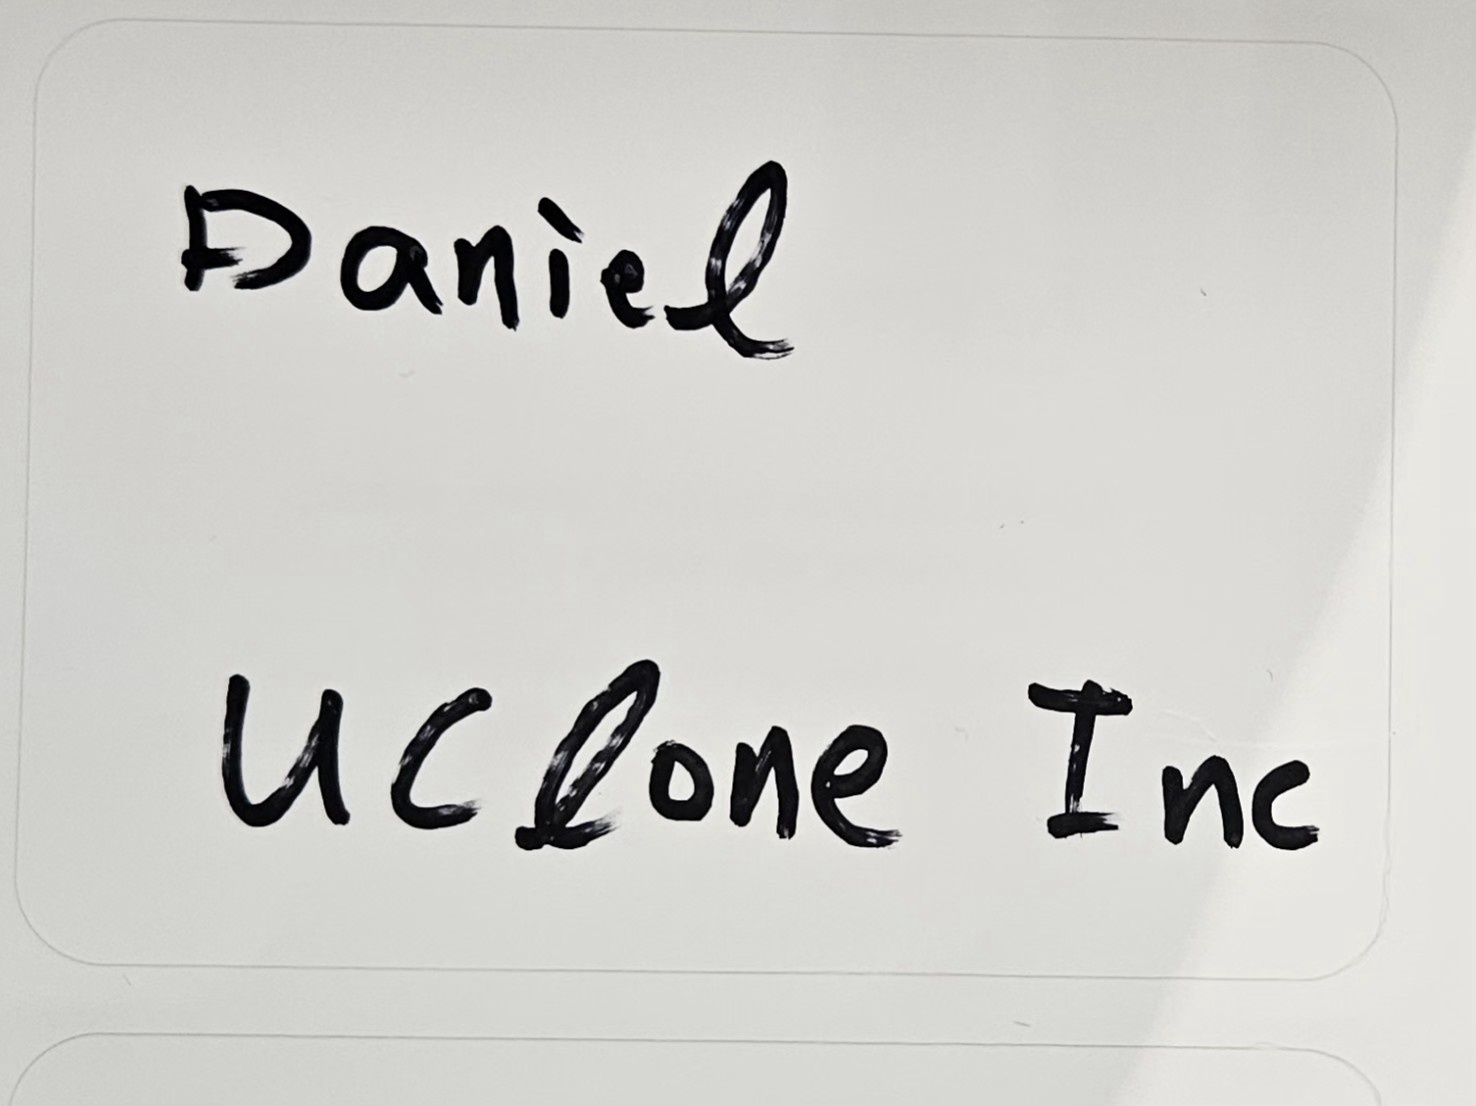 Daniel
UClone Inc